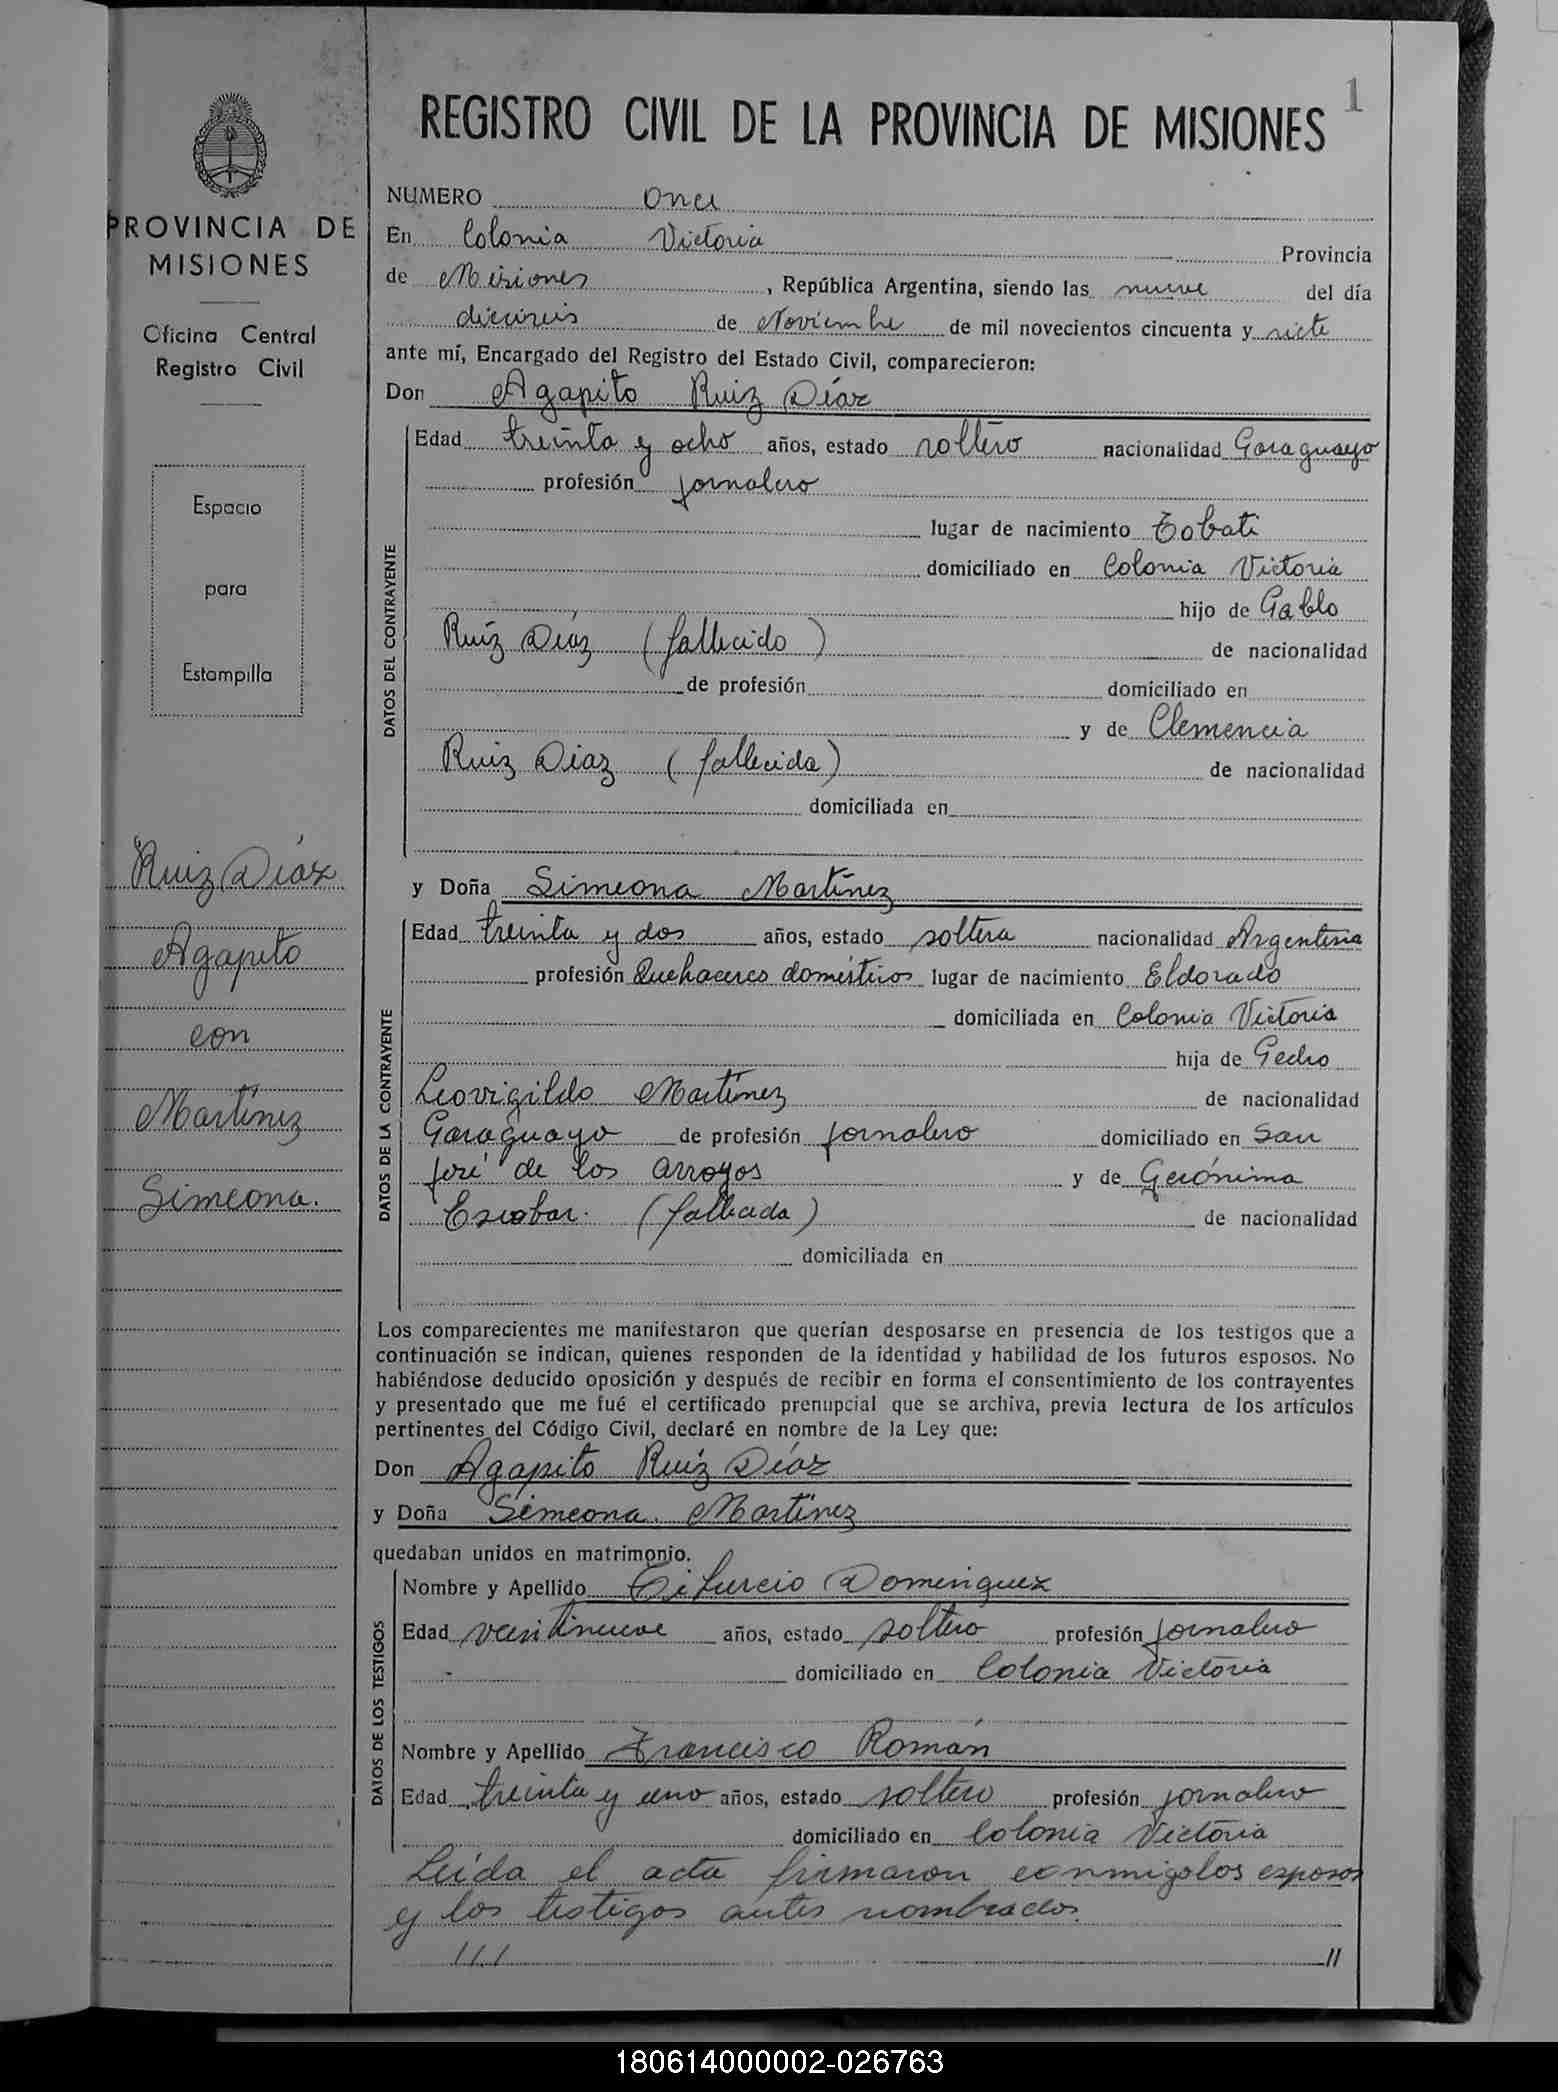 1
REGISTRO CIVIL DE LA PROVINCIA DE MISIONES
PROVINCIA DE
MISIONES
Oficina Central
Registro Civil
Espacio
para
Estampilla
Ruiz Díaz
Agapito
con
Martínez
Simeona.
NUMERO Once
En Colonia Victoria Provincia
de Misiones, República Argentina, siendo las nueve del día
dieciseis de Noviembre de mil novecientos cincuenta y siete
ante mí, Encargado del Registro del Estado Civil, comparecieron:
Don Agapito Ruiz Díaz
DATOS DEL CONTRAYENTE
Edad treinta y ocho años, estado soltero nacionalidad Paraguayo
profesión jornalero
lugar de nacimiento Tobati
domiciliado en Colonia Victoria
hijo de Pablo
Ruiz Díaz (fallecido) de nacionalidad
de profesión domiciliado en
y de Clemencia
Ruiz Diaz (fallecida) de nacionalidad
domiciliada en
y Doña Simeona Martínez
DATOS DE LA CONTRAYENTE
Edad treinta y dos años, estado soltera nacionalidad Argentina
profesión Quehaceres domésticos lugar de nacimiento Eldorado
domiciliada en Colonia Victoria
hija de Pedro
Leovigildo Martínez de nacionalidad
Paraguayo de profesión jornalero domiciliado en San
José de los Arroyos y de Gerónima
Escobar. (fallecida) de nacionalidad
domiciliada en
Los comparecientes me manifestaron que querían desposarse en presencia de los testigos que a
continuación se indican, quienes responden de la identidad y habilidad de los futuros esposos. No
habiéndose deducido oposición y después de recibir en forma el consentimiento de los contrayentes
y presentado que me fué el certificado prenupcial que se archiva, previa lectura de los artículos
pertinentes del Código Civil, declaré en nombre de la Ley que:
Don Agapito Ruiz Díaz
y Doña Simeona. Martínez
quedaban unidos en matrimonio.
DATOS DE LOS TESTIGOS
Nombre y Apellido Tiburcio Dominguez
Edad veintinueve años, estado soltero profesión jornalero
domiciliado en Colonia Victoria
Nombre y Apellido Francisco Román
Edad treinta y uno años, estado soltero profesión jornalero
domiciliado en Colonia Victoria
Leída el acta firmaron conmigo los esposos
y los testigos antes nombrados.
///. //
180614000002-026763